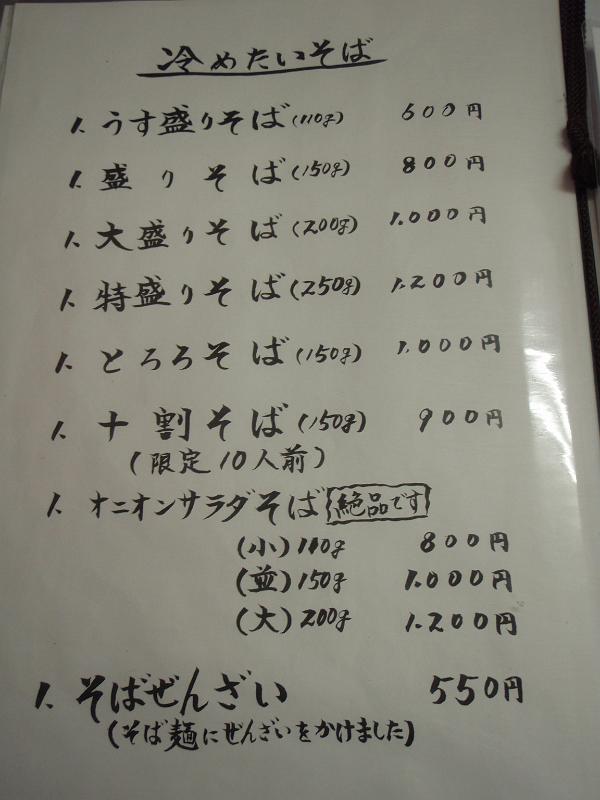 冷めたいそば
1. うす盛りそば(110g) 600円
1. 盛りそば(150g) 800円
1. 大盛りそば(200g) 1.000円
1. 特盛りそば(250g) 1.200円
1. とろろそば(150g) 1.000円
1. 十割そば(150g) 900円
(限定10人前)
1. オニオンサラダそば 絶品です
(小)110g 800円
(並)150g 1.000円
(大)200g 1.200円
1. そばぜんざい 550円
(そば麺にぜんざいをかけました)